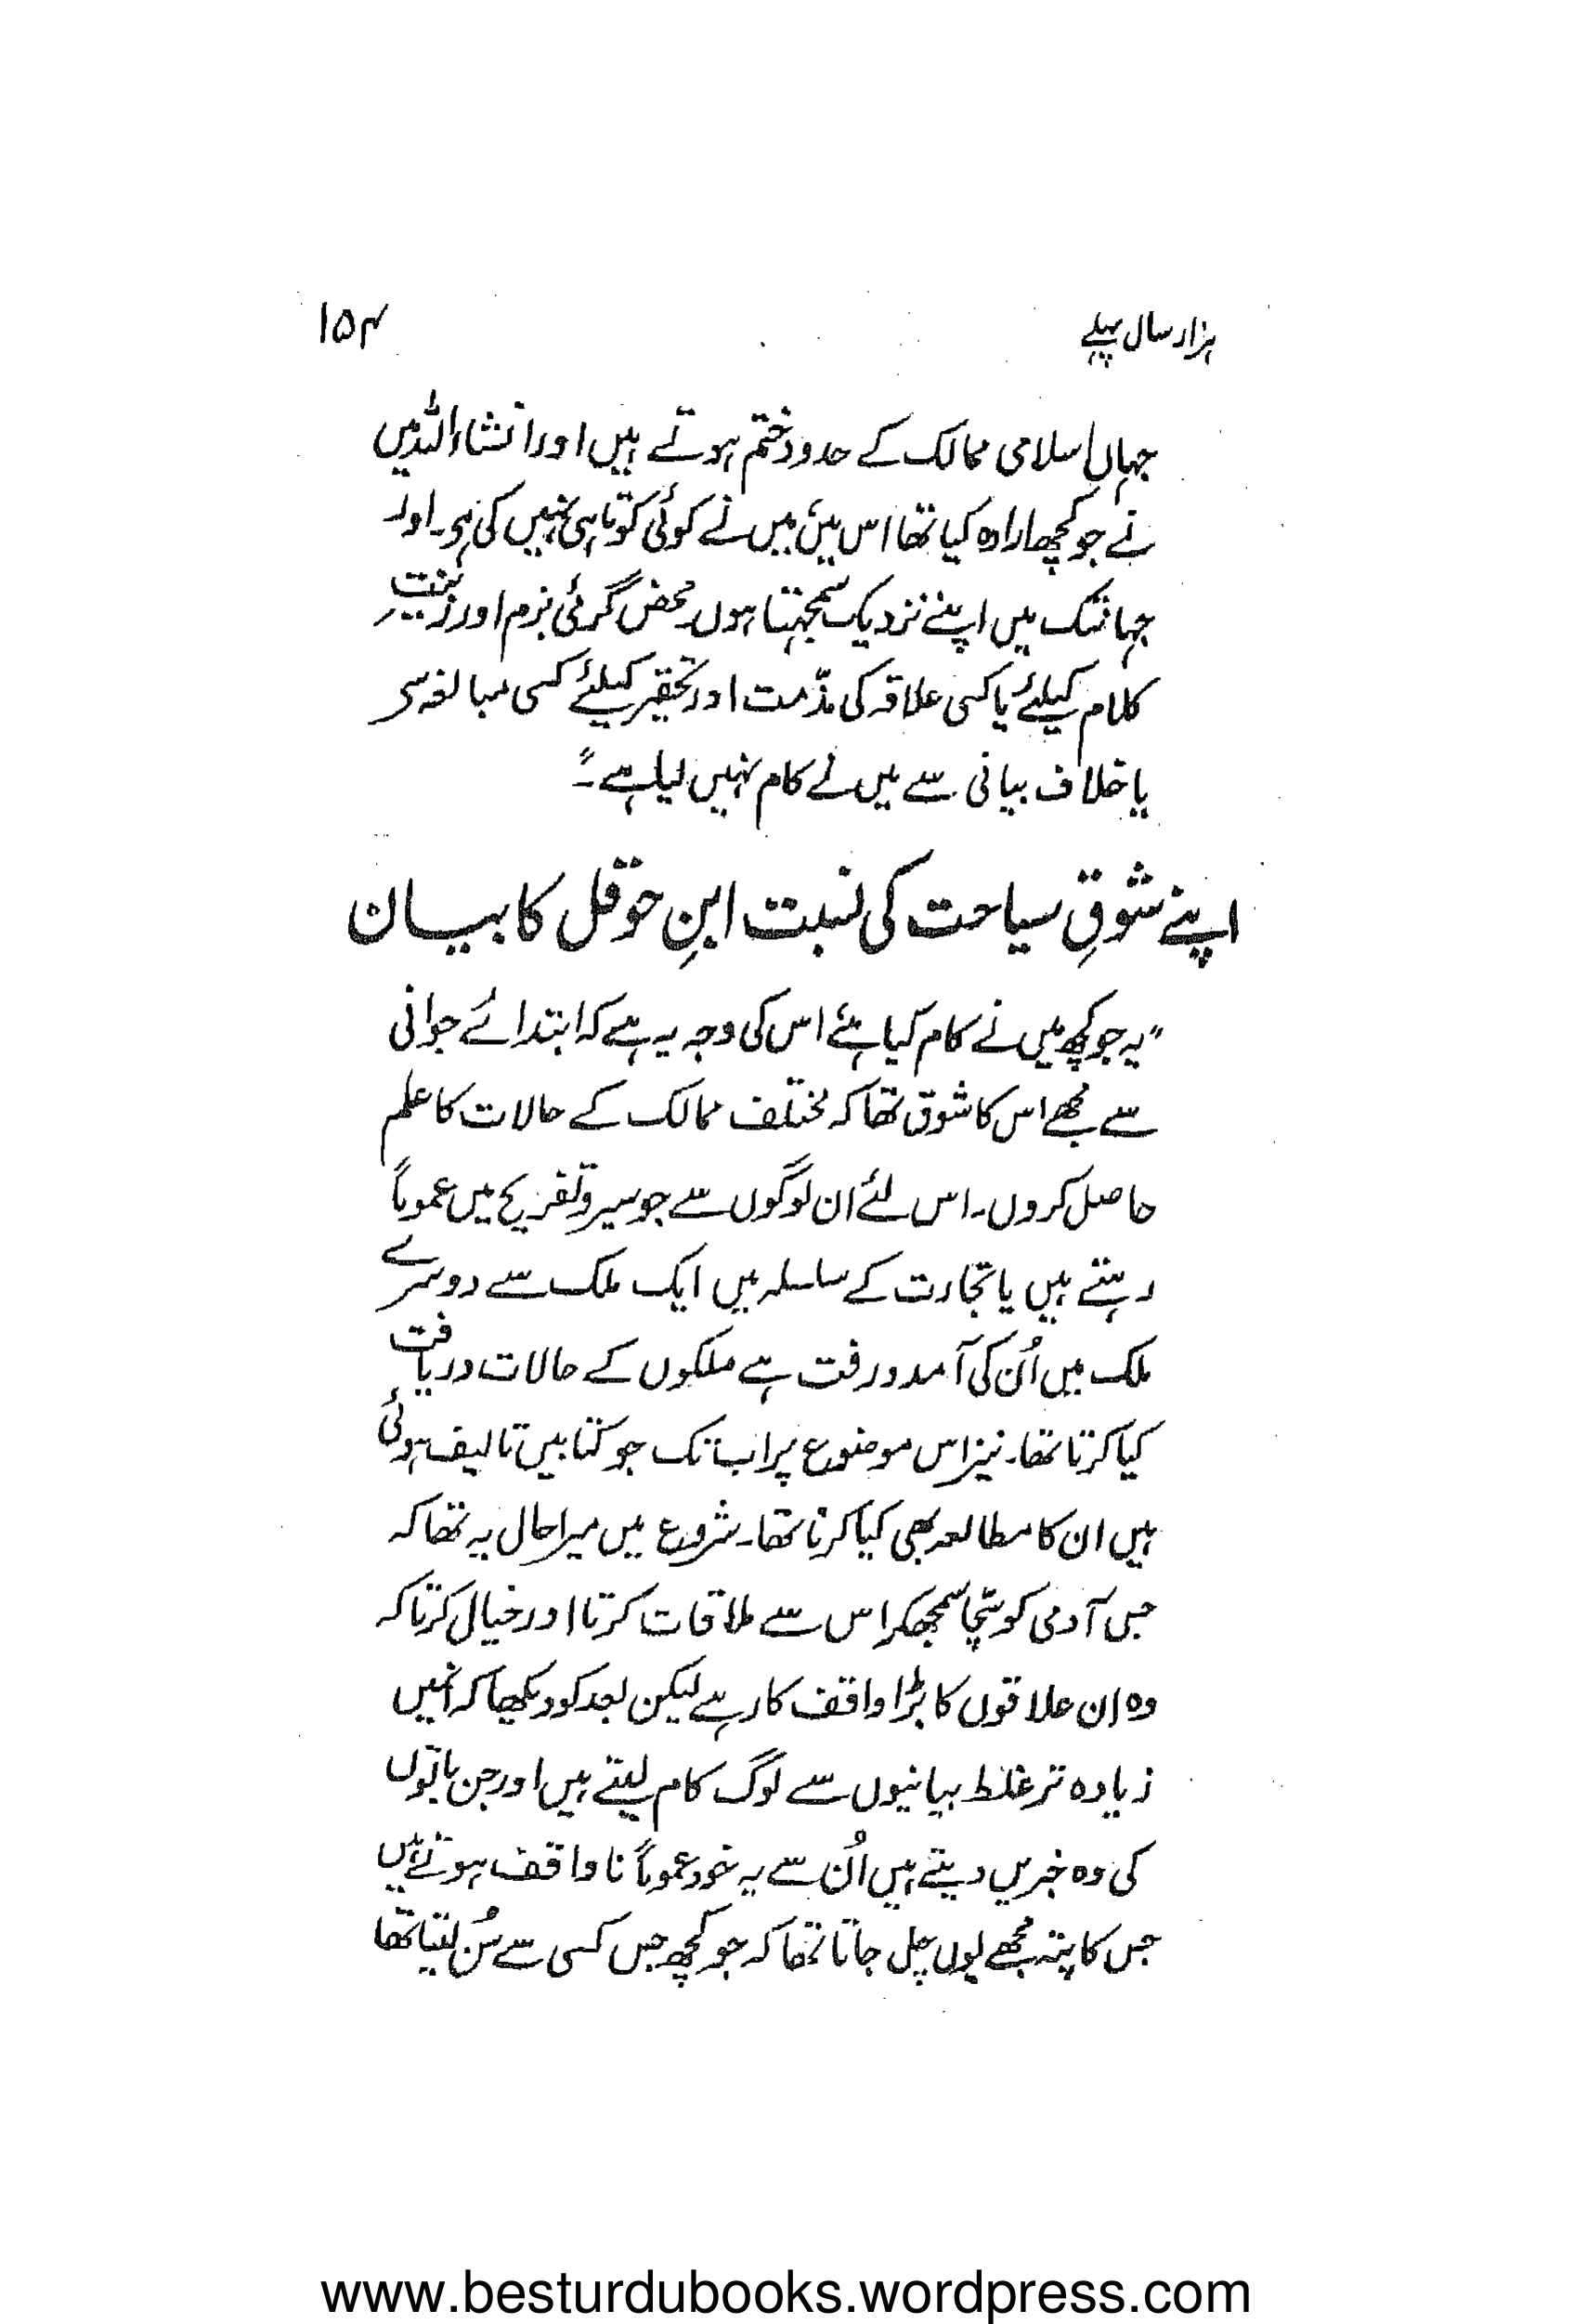 ہزار سال پہلے
۱۵۴
جہاں اسلامی ممالک کے حدود ختم ہوتے ہیں اور انشاءاللہ میں
نے جو کچھ ارادہ کیا تھا اس میں میں نے کوئی کوتاہی نہیں کی ہی۔ اور
جہانتک میں اپنے نزدیک سمجہتا ہوں محض گرمئی بزم اور زینت
کلام کیلئے یا کسی علاقہ کی مذمت اور تحقیر کیلئے کسی مبالغہ سی
یا خلاف بیانی سے میں نے کام نہیں لیا ہے۔"
اپنے شوقِ سیاحت کی نسبت ابنِ حوقل کا بیان
"یہ جو کچھ میں نے کام کیا ہے اس کی وجہ یہ ہے کہ ابتدائے جوانی
سے مجھے اس کا شوق تھا کہ مختلف ممالک کے حالات کا علم
حاصل کروں۔ اس لئے ان لوگوں سے جو سیر و تفریح میں عموماً
رہتے ہیں یا تجارت کے سلسلہ میں ایک ملک سے دوسرے
ملک میں اُن کی آمد و رفت ہے ملکوں کے حالات دریافت
کیا کرتا تھا۔ نیز اس موضوع پر اب تک جو کتابیں تالیف ہوئی
ہیں ان کا مطالعہ بھی کیا کرتا تھا۔ شروع میں میرا حال یہ تھا کہ
جس آدمی کو سچّا سمجھکر اس سے ملاقات کرتا اور خیال کرتا کہ
وہ ان علاقوں کا بڑا واقف کار ہے لیکن بعد کو دیکھا کہ انہیں
زیادہ تر غلط بیانیوں سے لوگ کام لیتے ہیں اور جن باتوں
کی وہ خبریں دیتے ہیں اُن سے یہ خود عموماً ناواقف ہوتے ہیں
جس کا پتہ مجھے یوں چل جاتا تھا کہ جو کچھ جس کسی سے سُن لیتا تھا
www.besturdubooks.wordpress.com